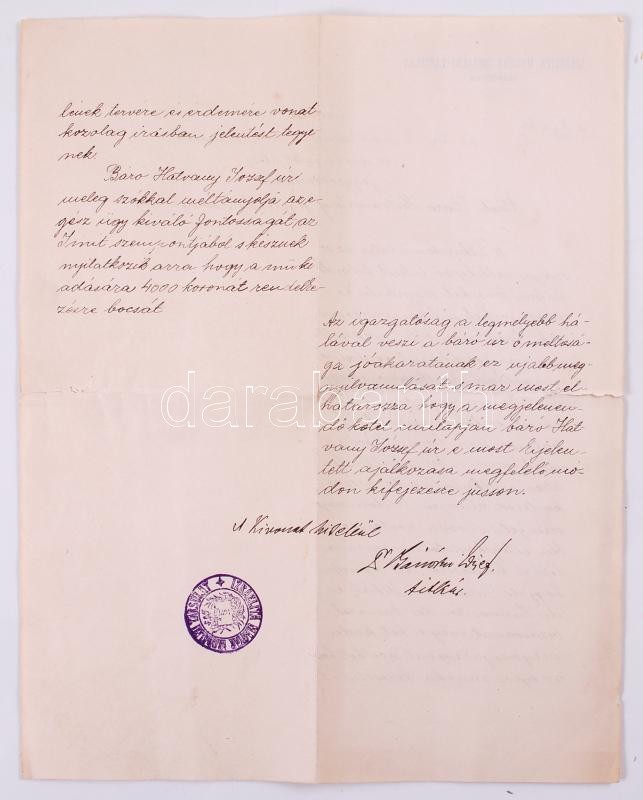 lének tervére és érdemére vonat-
kozólag írásban jelentést tegye-
nek.
Báró Hatvany József úr
meleg szókkal méltányolja az e-
gész ügy kiváló fontosságát az
Imit szempontjából s késznek
nyilatkozik arra hogy a mű ki-
adására 4000 koronát rendelke-
zésre bocsát
Az igazgatóság a legmélyebb há-
lával veszi a báró úr ő méltósá-
ga jóakaratának ez ujabb meg-
nyilvanulását s már most el-
határozza hogy a megjelenen-
dő kötet cimlapján báro Hat-
vany József úr e most kijelen-
tett ajálkozása megfelelő mó-
don kifejezésre jusson.
A Kivonat hiteléül
Dr Bánóczi József.
titkár.
IZRAELITA MAGYAR IRODALMI TÁRSULAT
darabanth